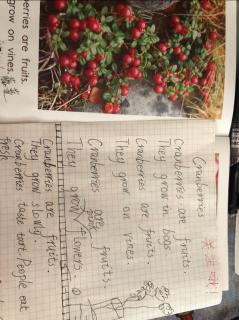 erries are fruits.
grow on vines.
Cranberries
Cranberries are fruits.
They grow in bogs
Cranberries are fruits.
They grow on vines.
Cranberries are fruits.
They grow flowers.
Cranberries are fruits.
They grow slowly.
Cranberries taste tart. People eat
fresh